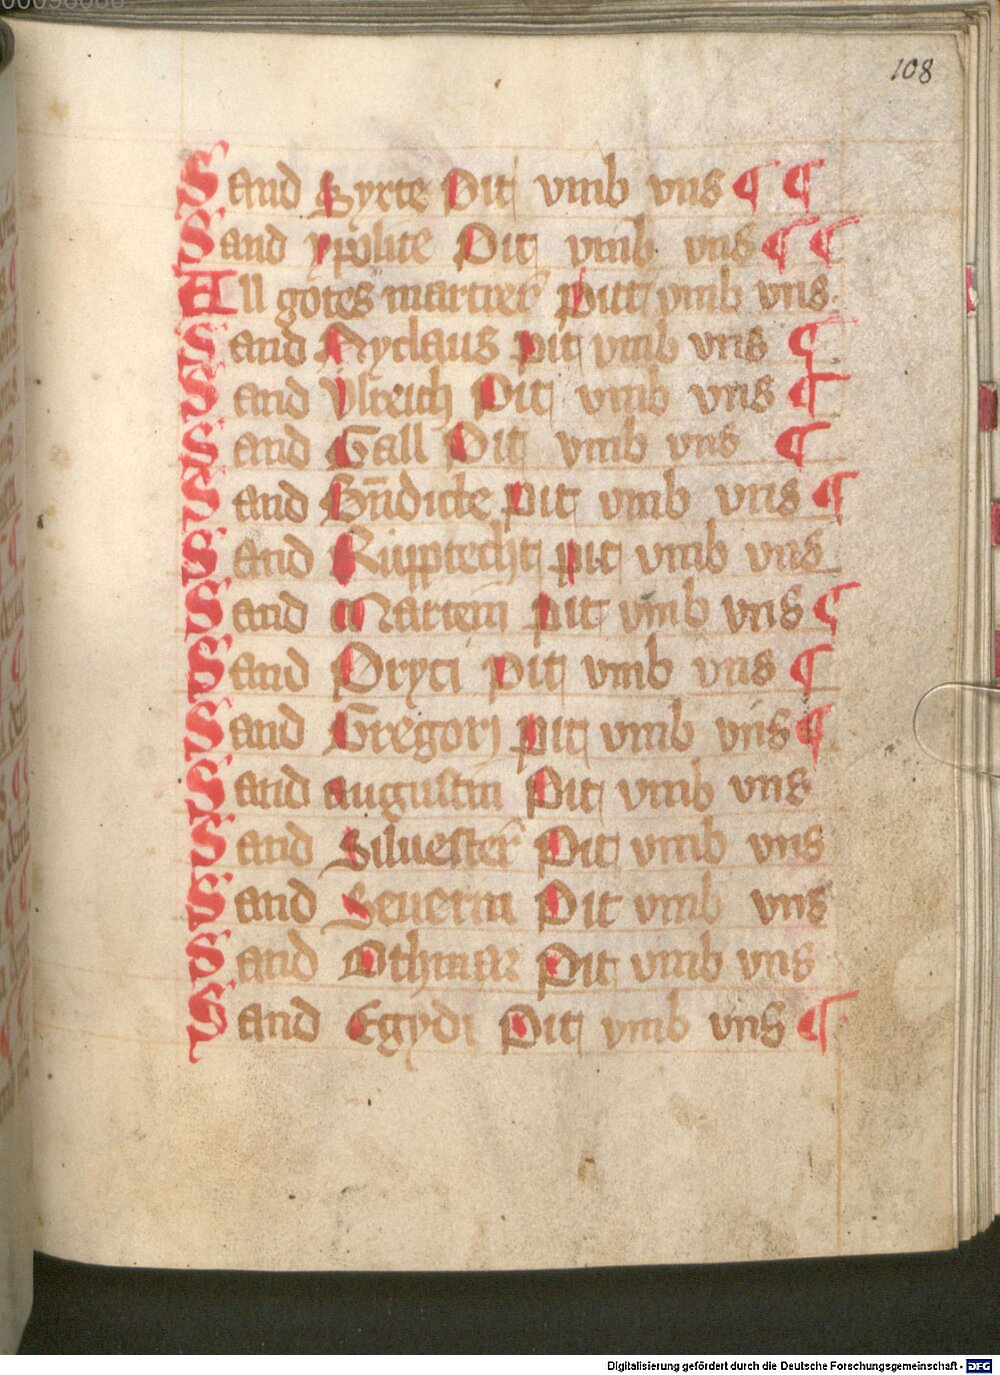 00098080
108
Sand Syxte Pit vmb vns ¶ ¶
Sand ypolite Pit vmb vns ¶ ¶
All gotes martrer Pitt vmb vns
Sand Nyclaus pit vmb vns ¶
Sand Vlreich Pit vmb vns ¶
Sand Gall Pit vmb vns ¶
Sand Bn̄dicte Pit vmb vns ¶
Sand Rupprecht pit vmb vns
Sand Martein Pit vmb vns ¶
Sand Pryci Pit vmb vns ¶
Sand Gregorj pit vmb vns ¶
Sand augustin Pit vmb vns
Sand Siluester Pit vmb vns
Sand Seuerin Pit vmb vns
Sand Othmar Pit vmb vns
Sand Egydi Pit vmb vns ¶
Digitalisierung gefördert durch die Deutsche Forschungsgemeinschaft - DFG